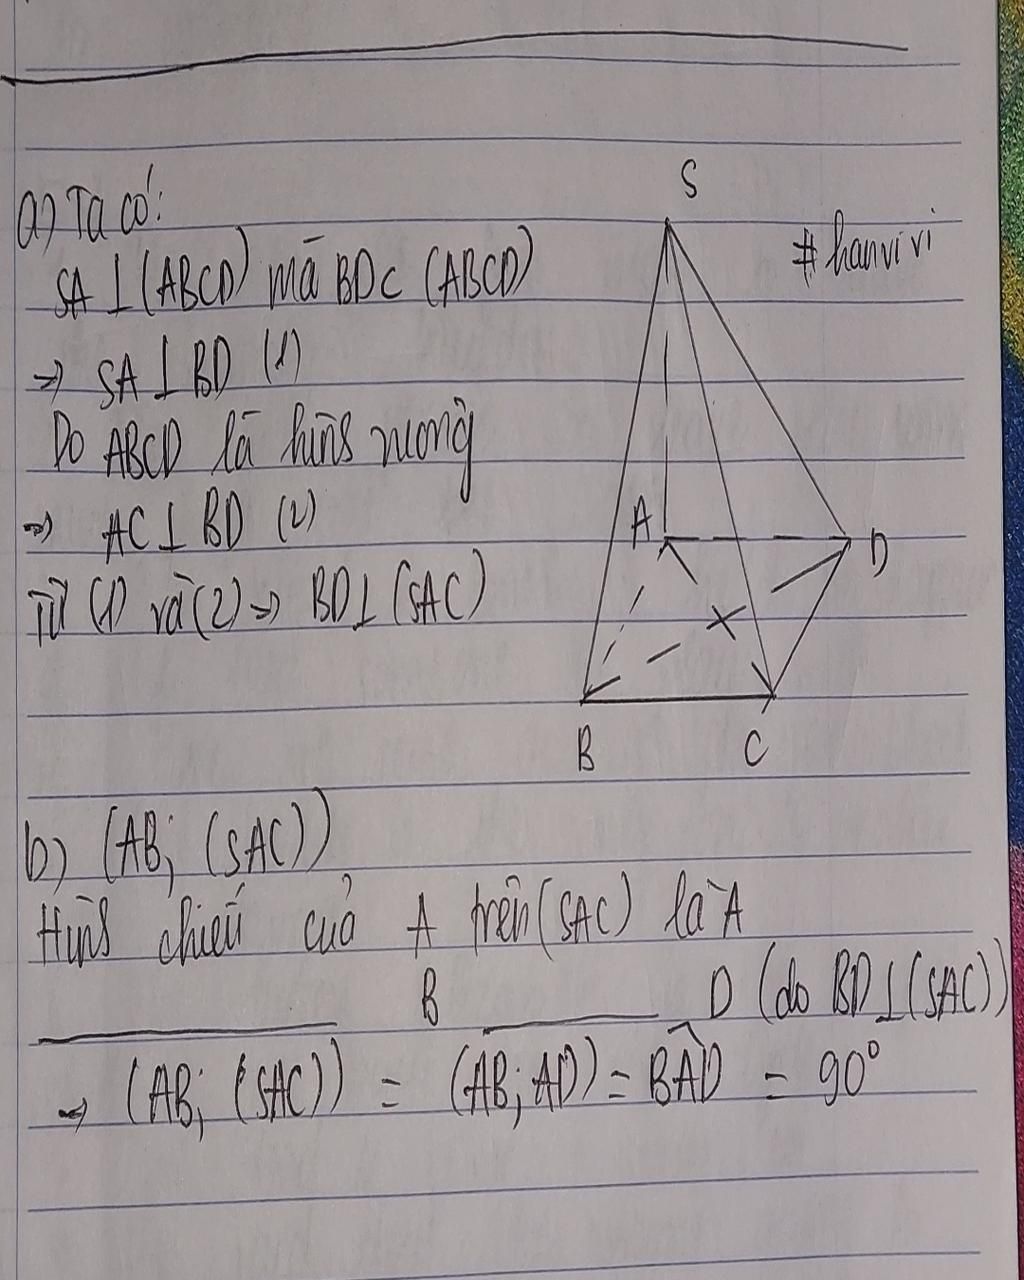 a) Ta có:
S
# hanvivi
SA ⊥ (ABCD) mà BD ⊂ (ABCD)
⇒ SA ⊥ BD (1)
Do ABCD là hình vuông
⇒ AC ⊥ BD (2)
Từ (1) và (2) ⇒ BD ⊥ (SAC)
A
D
B
C
b) (AB; (SAC))
Hình chiếu của A trên (SAC) là A
B ———— D (do BD ⊥ (SAC))
⇒ (AB; (SAC)) = (AB; AD) = BAD̂ = 90°